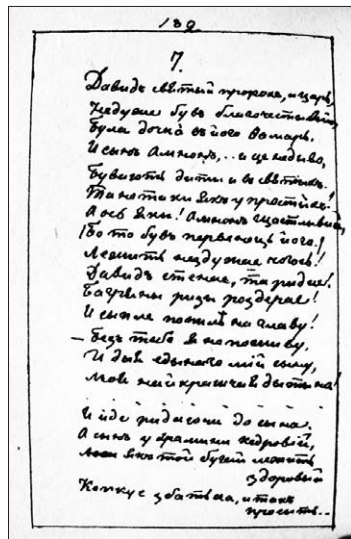 132
7.
Давидъ святый пророкъ, и царь,
Недуже бувъ благочестывый
Була дочка́ въ його Ѳамарь.
И сынъ Амнонъ... и це недыво,
Бувають диты и въ святыхъ.!
Та не таки якъ у простыхъ!
А ось яки! Амнонъ щастлывый,
Бо то бувъ первенець його!
Лежить нездужає чогось!
Давидъ стенає, та рыдає!
Багряны ризы роздерає!
И сыпле попилъ на главу!
— Безъ тебе я непожыву,
И дня едынаго мій сыну,
Моя найкращая дытына!
И йде рыдаючи до сына.
А сынъ у храмини кедровій,
якъ той бугай лежить
здоровый
Кепкує зъ батька, и такъ
просить..